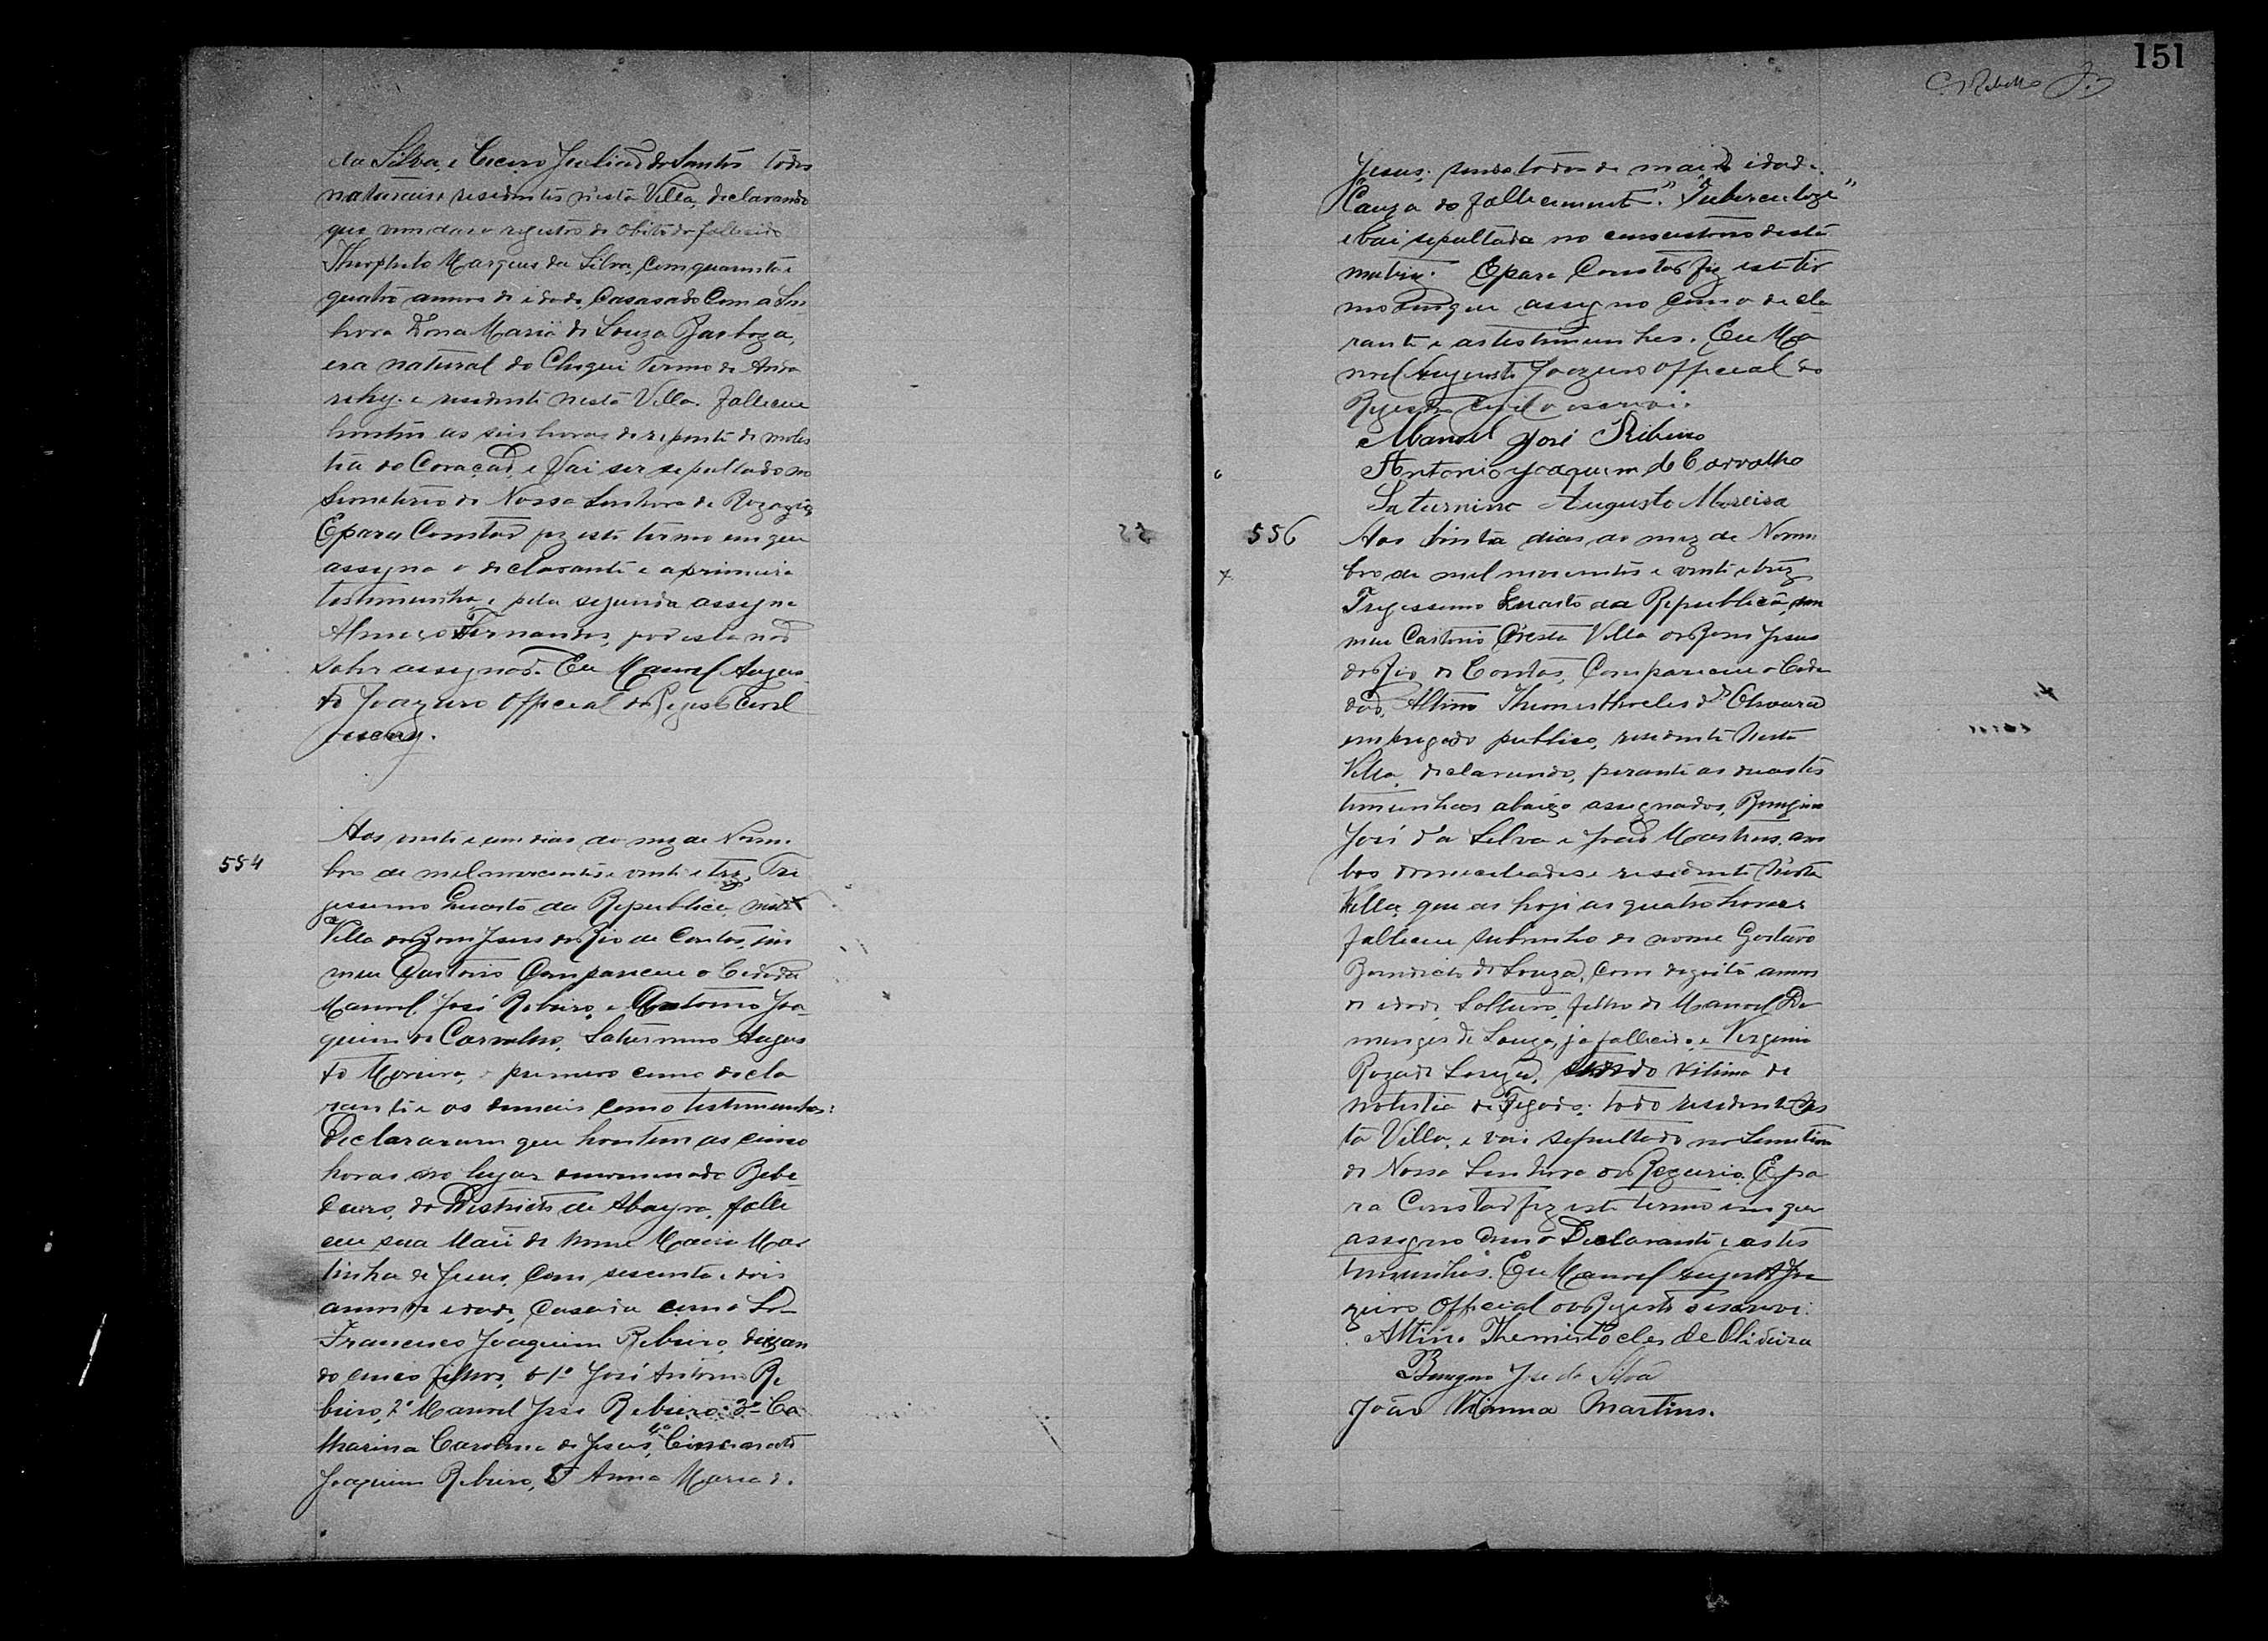 da Silva, e Cicero Julião do Santos todos
naturais e residentes n'esta Villa, declarando
que vem dar o registro de obito do fallecido
Theophilo Marques da Silva, com quarenta e
quatro annos de idade, Casasado Com a Se
nhora Dona Maria de Souza Barboza,
era natural do Termo de Anda
rahy. e residente nesta Villa. falleceu
hontem as seis horas de repente de moles
tia do Coração, e Vai ser sepultado no
Semeterio de Nossa Senhora do
E para Constar fiz este termo em que
assigna o declarante e a primeira
testimunha, e pela segunda assigna
Fernandes, por esta não
saber assignar. Eu Manoel Augus
to Joazeiro Official do Registo Civil
o escrevy.
554
Aos vinte e um dias do mez de Novem.
bro de mil novecentos e vinte e trez, Tri
gessimo Quarto da Republica, nesta
Villa do Bom Jesus do Rio de Contas, em
meu Cartorio Compareceu o Cidadão
Manoel José Ribeiro, e Antonio Joa-
quim de Carvalho, Saturnino Augus
to Moreira, o primeiro como decla
rante e os demais como testimunhas:
Declararam que hontem as cinco
horas no lugar denominado Bebe-
douro, do Districto de Abayra, falle
ceu sua Mãe de nome Maria Mar
tinha de Jesus, Com sescenta e dois
annos de idade, Casada com o Sr.
Francisco Joaquim Ribeiro, deixan
do cinco filhos, o 1º José Antonio Ri
beiro, 2º Manoel José Ribeiro. 3º Ca
tharina Carolina de Jesus, 4º
Joaquim Ribeiro, 5º Anna Maria de
151
Jesus; sendo todos de maior idade.
"Cauza do fallecimento". "Tuberculoze"
e vai sepultada no desta
matriz. E para Constar fiz este ter
mo em que assigno com o decla-
rante e as testimunhas. Eu Ma
noel Augusto Joazeiro official do
Registro Civil o escrevi.
Manoel José Ribeiro
Antonio Joaquim de Carvalho
Saturnino Augusto Moreira
556
Aos trinta dias do mez de Novem
bro de mil novecentos e vinte e trez
Trigessimo Quarto da Republica, em
meu Cartorio n'esta Villa do Bom Jesus
do Rio de Contas, Compareceu o Cida
dão, Altino Themisthocles de Oliveira
empregado publico, residente nesta
Villa, declarando, perante as duas tes
timunhas abaixo assignados, Benigno
José da Silva e João Martins, am
bos domeciliados e residente nesta
Villa, que as hoje as quatro horas
falleceu subrinho de nome Gustavo
Benedicto de Souza, com dezoito annos
de idade, Solteiro, filho de Manoel Do
mingos de Souza, já fallecido, e Virginia
Roza de Souza, sendo vitima de
molestia de Figado; todo residente nes
ta Villa, e vai sepultado no Semeterio
de Nossa Senhora do Rozario. E pa
ra Constar fiz este termo em que
assigno com o Declarante e as tes
timunhas. Eu Manoel Augusto Joa
zeiro Official do Registo o escrevi.
Altino Themistocles de Oliveira
Benigno Jose da Silva
João Vianna Martins.